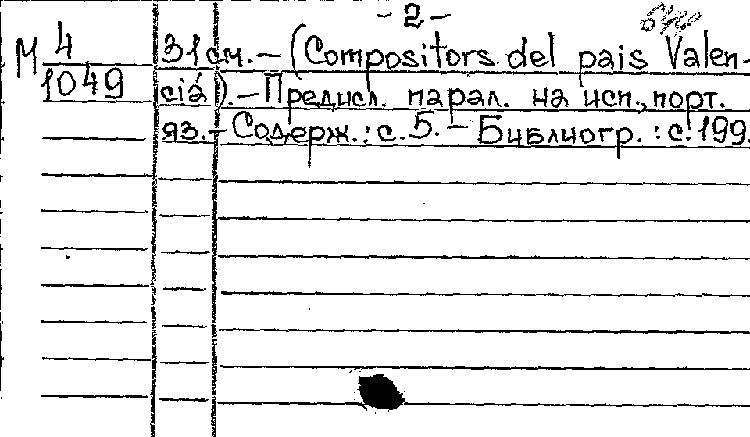 - 2 -
М 4 31см. – (Compositors del pais Valen-
1049 cià). – Предисл. парал. на исп., порт.
яз. – Содерж.: с. 5. – Библиогр.: с. 199.